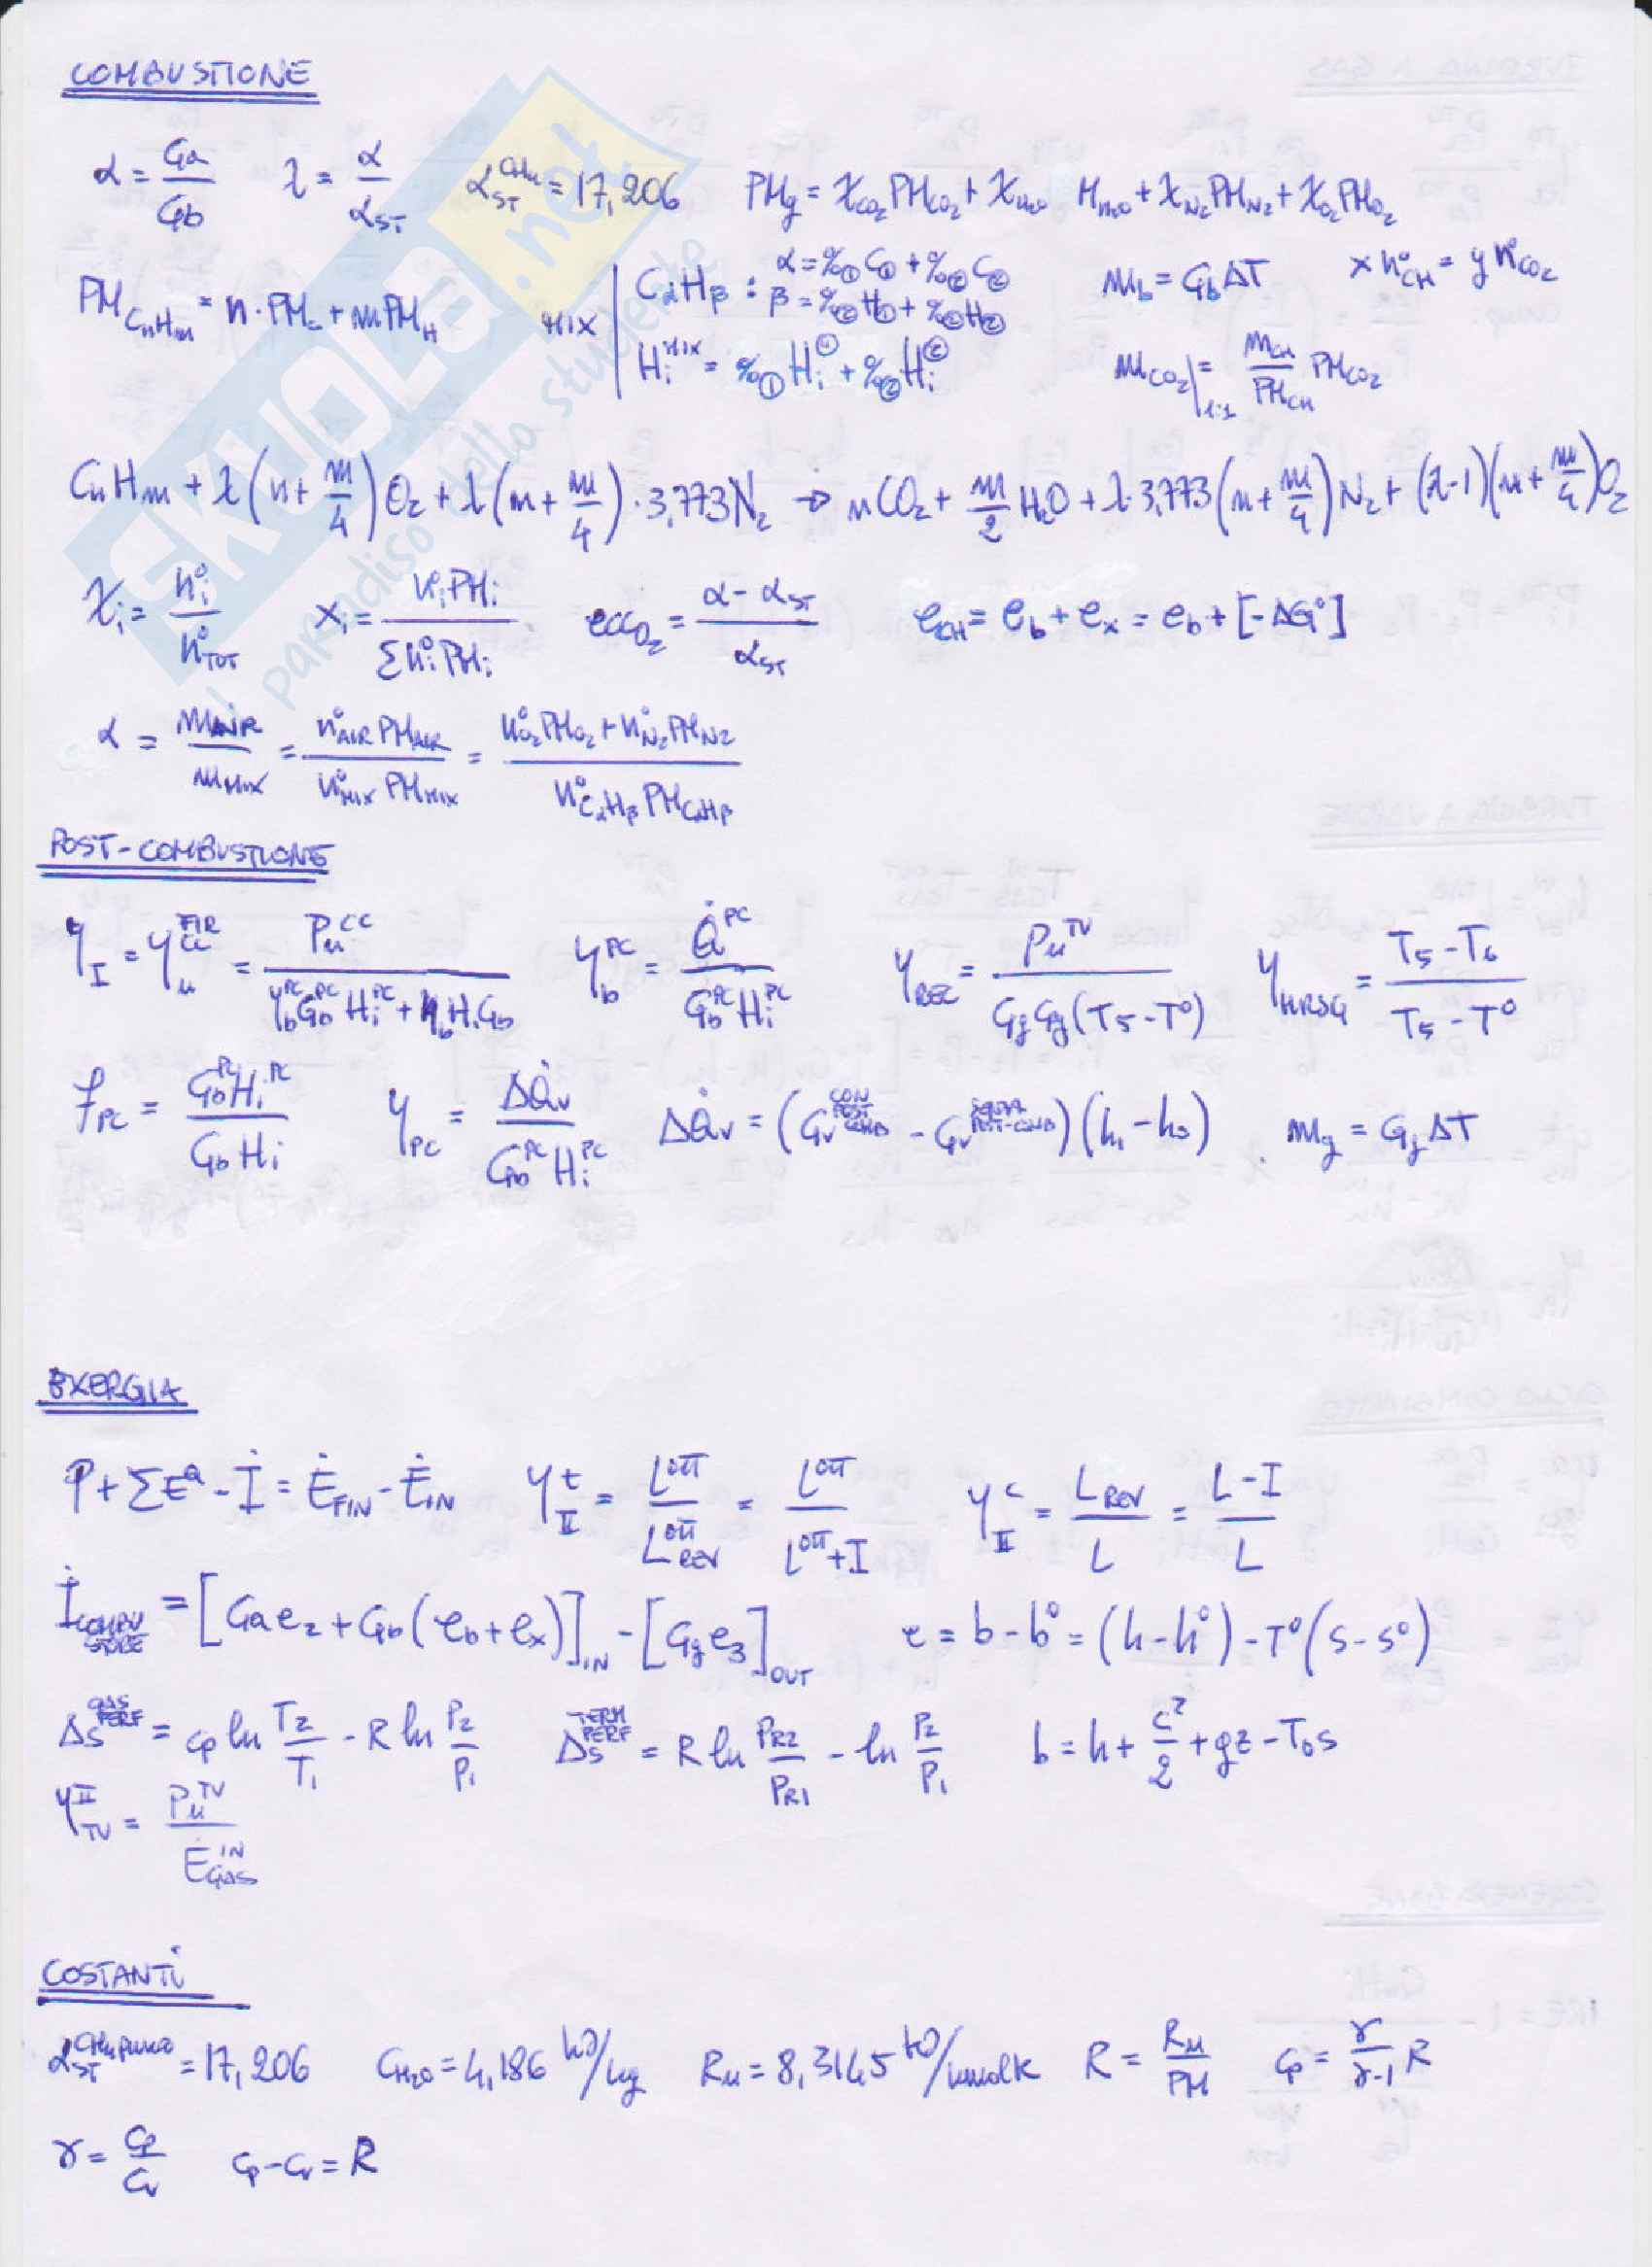 COMBUSTIONE
α = Ga/Gb   λ = α/α_ST   α_ST^CH4 = 17,206   PM_g = χ_CO2 PM_CO2 + χ_H2O M_H2O + χ_N2 PM_N2 + χ_O2 PM_O2
PM_CnHm = n·PM_C + m PM_H   MIX | CαHβ : α = %① C① + %② C②   m_b = G_b ΔT   x n°_CH = y n°_CO2
β = %② H① + %② H②
H_i^MIX = %① H_i^① + %② H_i^②   m_CO2|1:1 = m_CH/PM_CH PM_CO2
CnHm + λ(n + m/4)O2 + λ(n + m/4)·3,773N2 → nCO2 + m/2 H2O + λ·3,773(n + m/4)N2 + (λ-1)(n + m/4)O2
χi = n°i/n°TOT   xi = n°i PMi/Σn°i PMi   ecc_O2 = (α - α_ST)/α_ST   e_CH = e_b + e_x = e_b + [-ΔG°]
α = m_AIR/m_MIX = n°AIR PM_AIR/n°MIX PM_MIX = (n°O2 PM_O2 + n°N2 PM_N2)/(n°CαHβ PM_CαHβ)
POST-COMBUSTIONE
η_I = η_u^FIR CC = Pu^CC/(η_b^PC G_b^PC H_i^PC + η_b Hi Gb)   η_b^PC = Q̇^PC/(G_b^PC H_i^PC)   η_REC = Pu^TV/(Gg Cg(T5 - T°))   η_HRSG = (T5 - T6)/(T5 - T°)
f_PC = G_b^PC H_i^PC/(Gb Hi)   η_PC = ΔQ̇v/(G_b^PC H_i^PC)   ΔQ̇v = (Gv^CON POST COMB - Gv^SENZA POST-COMB)(h1 - h0)   m_g = G_g ΔT
EXERGIA
P + ΣE^Q - İ = Ė_FIN - Ė_IN   η_II^t = L^OTT/L_REV^OTT = L^OTT/(L^OTT + I)   η_II^c = L_REV/L = (L - I)/L
İ_COMBUSTORE = [Ga e2 + Gb(e_b + e_x)]_IN - [Gg e3]_OUT   e = b - b° = (h - h°) - T°(s - s°)
Δs^GAS PERF = cp ln T2/T1 - R ln P2/P1   Δs^TERM PERF = R ln PR2/PR1 - ln P2/P1   b = h + c²/2 + gz - T0 s
η_TV^II = Pu^TV/Ė_GAS^IN
COSTANTI
α_ST^CH4 puro = 17,206   C_H2O = 4,186 kJ/kg   Ru = 8,3145 kJ/kmolK   R = Ru/PM   cp = γ/(γ-1) R
γ = cp/cv   cp - cv = R
SKUOLA.net
il paradiso dello studente